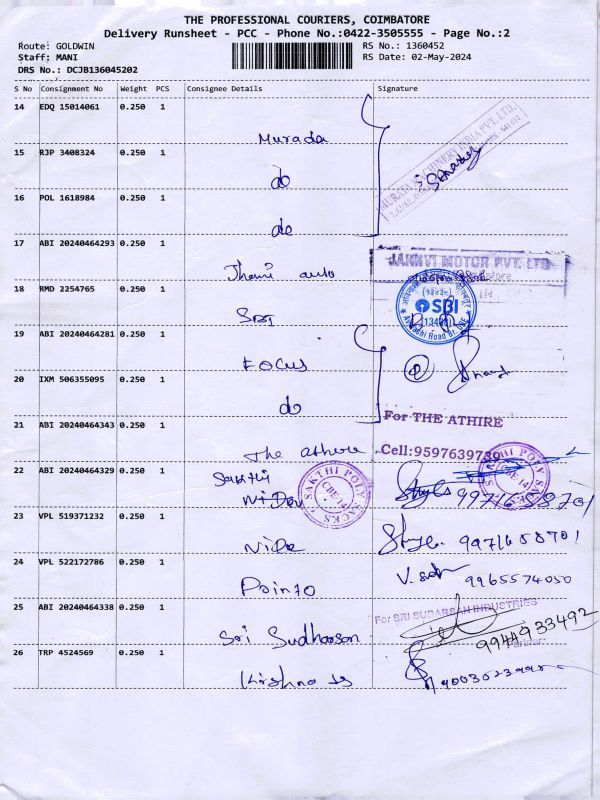 THE PROFESSIONAL COURIERS, COIMBATORE
Delivery Runsheet - PCC - Phone No.:0422-3505555 - Page No.:2
Route: GOLDWIN
RS No.: 1360452
Staff: MANI
RS Date: 02-May-2024
DRS No.: DCJB136045202
S No Consignment No Weight PCS Consignee Details Signature
14 EDQ 15014061 0.250 1
Murada
15 RJP 3408324 0.250 1
do
16 POL 1618984 0.250 1
do
17 ABI 20240464293 0.250 1
Jhami auto
JAHNVI MOTOR PVT. LTD
18 RMD 2254765 0.250 1
SBI
SBI
19 ABI 20240464281 0.250 1
Focus
20 IXM 506355095 0.250 1
do
Anand
21 ABI 20240464343 0.250 1
The athire
For THE ATHIRE
Cell:9597639730
22 ABI 20240464329 0.250 1
Sakthi
SAKTHI POLY SACKS
SAKTHI POLY SACKS
9971658701
23 VPL 519371232 0.250 1
Nide
9971658701
24 VPL 522172786 0.250 1
Pointo
9965574050
25 ABI 20240464338 0.250 1
Sri Sudharson
For SRI SUDARSAN INDUSTRIES
9944933492
Partner
26 TRP 4524569 0.250 1
Krishna